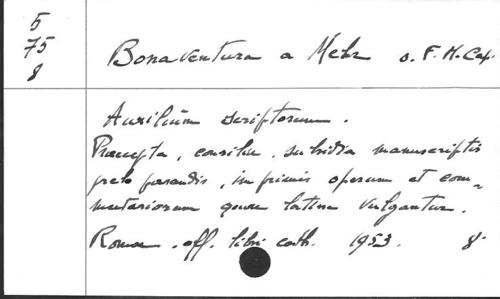 5
75
8
Bonaventura a Mehr o. F. M. Cap.
Auxilium scriptorum.
Praecepta, consilia, subsidia manuscriptis
prelo parandis, in primis operum et com-
mentariorum quae latine vulgantur.
Roma. off. libri cath. 1953. 8°